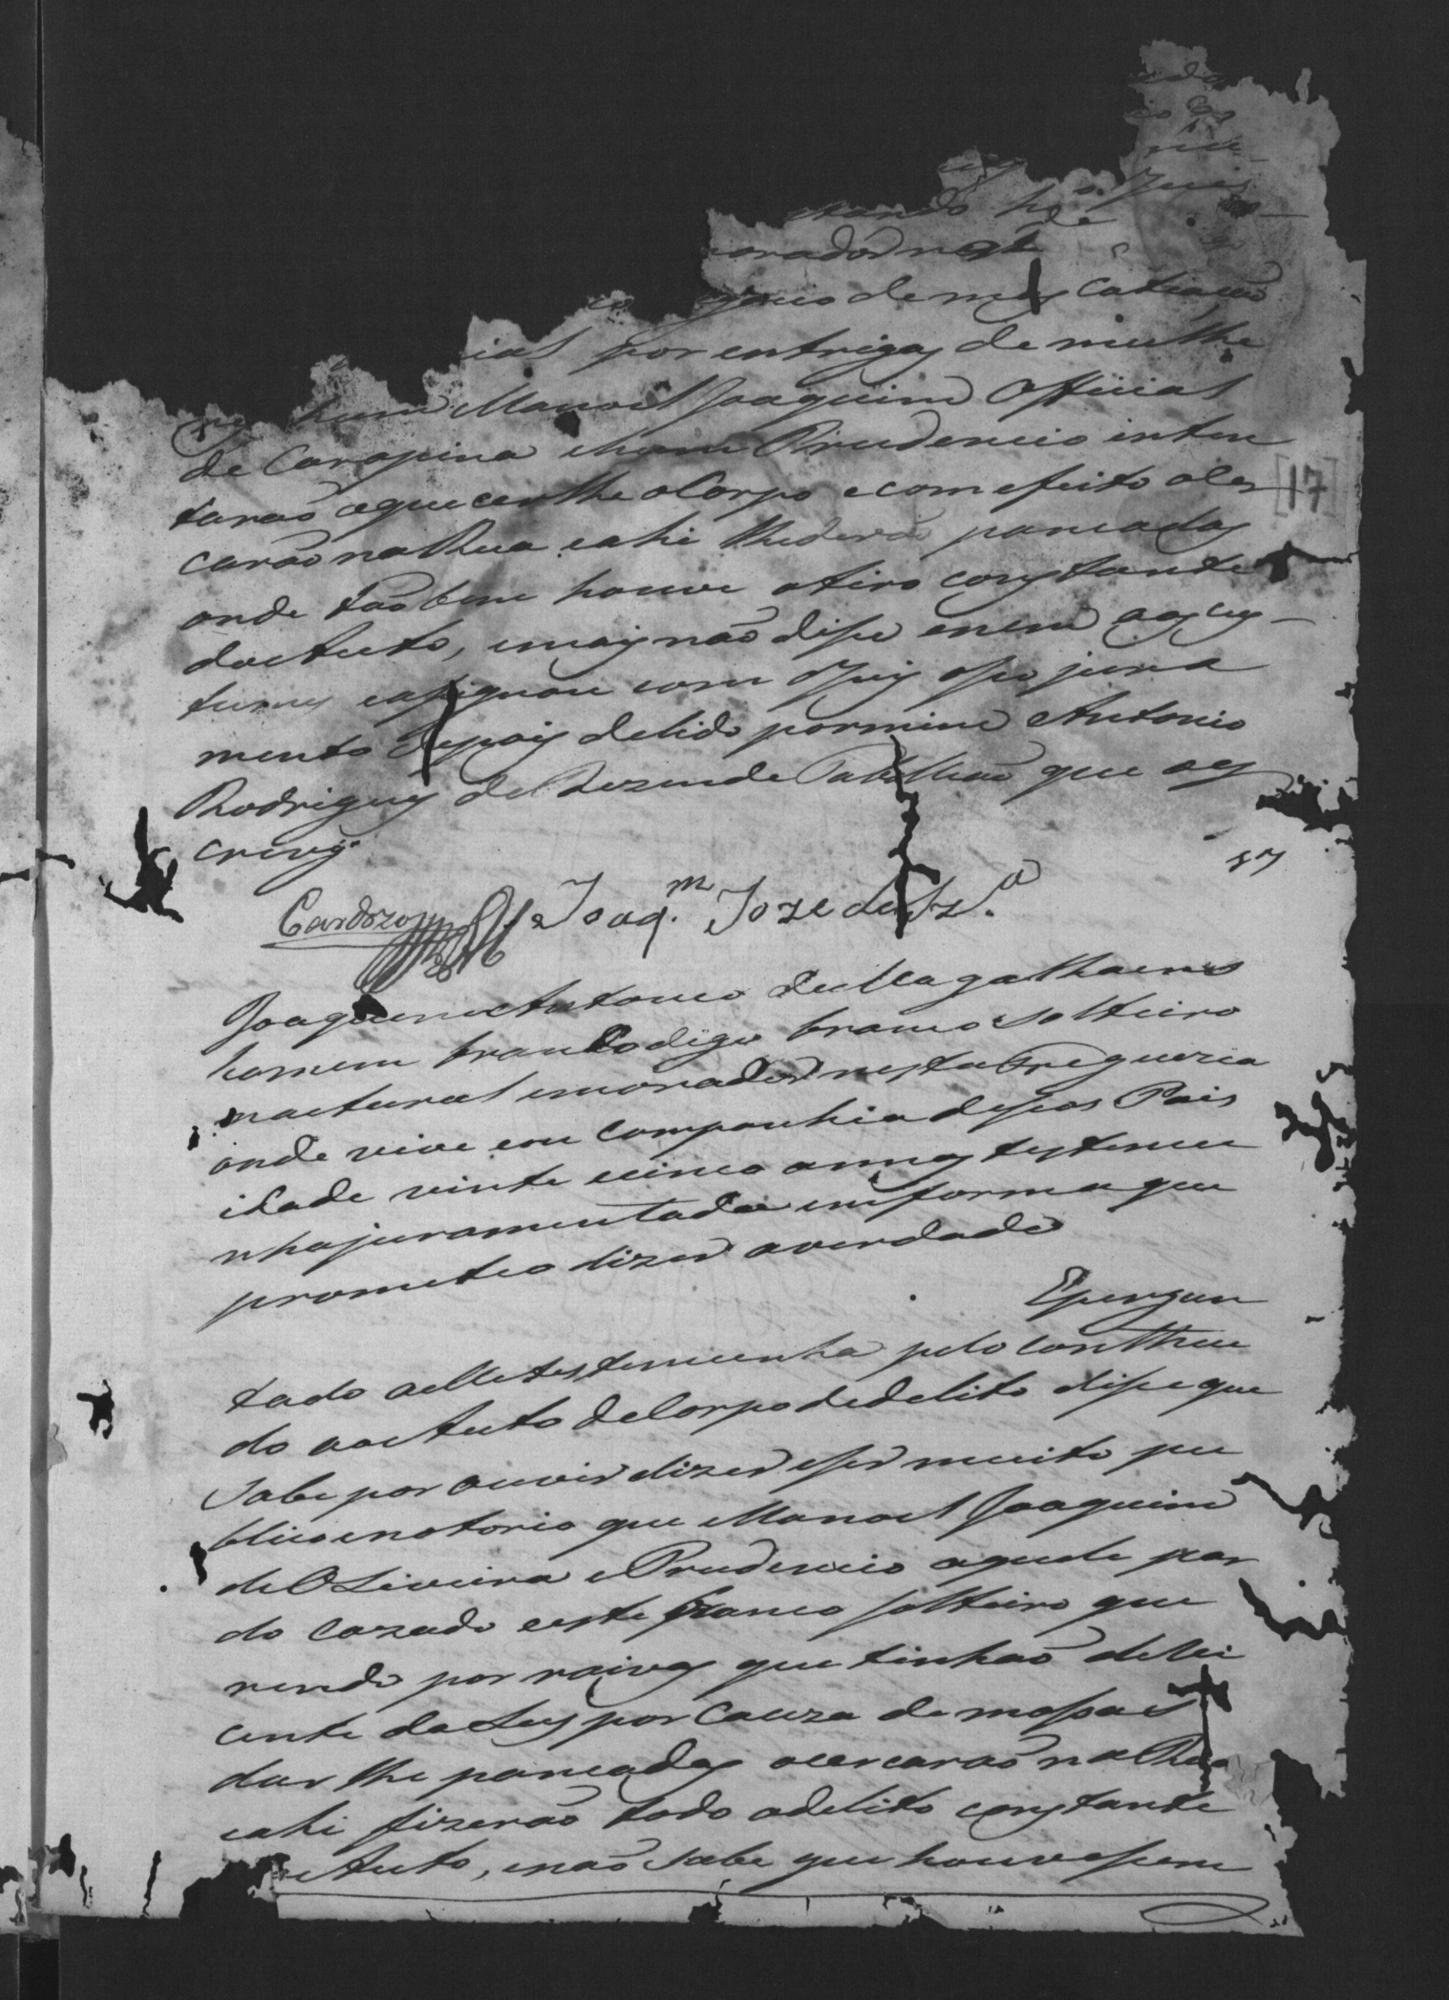 orador nest
de mes
por entrigas de mulhe
hum Manoel Joaquim Official
de Carapina ehum Prudencio inten
tarão aquecerlhe oCorpo ecom efeito oCer
carão naRua eahi lhederão pancadas
onde tão bem houve otiro constante
doAuto, emais não dise enem aos cus-
tumes easignou com oJuis oseo jura
mento depois delido pormim Antonio
Rodrigues deRezende Tabellião que oes
crevy
17
[17]
Cardozo Joaq.m Joze de Sz.a
Joaquim Antonio deMagalhaens
homem branco digo branco solteiro
natural emorador nesta Freguezia
onde vive em companhia deseos Pais
idade vinte ecinco annos testemu
nha juramentada emforma que
prometeo dizer averdade
Epergun
tado aelle testemunha pelo contheu
do no Auto deCorpo dedelito dise que
Sabe por ouvir dizer eser muito pu
blico enotorio que Manoel Joaquim
deOLiveira ePrudencio aquele par
do cazado eeste branco solteiro que
rendo por raivas que tinhão deVi
cente daLuz por Cauza de mossas
dar lhe pancadas ocercarão na Rua
eahi fizerão todo odelito constante
Auto, enão Sabe que houvesem